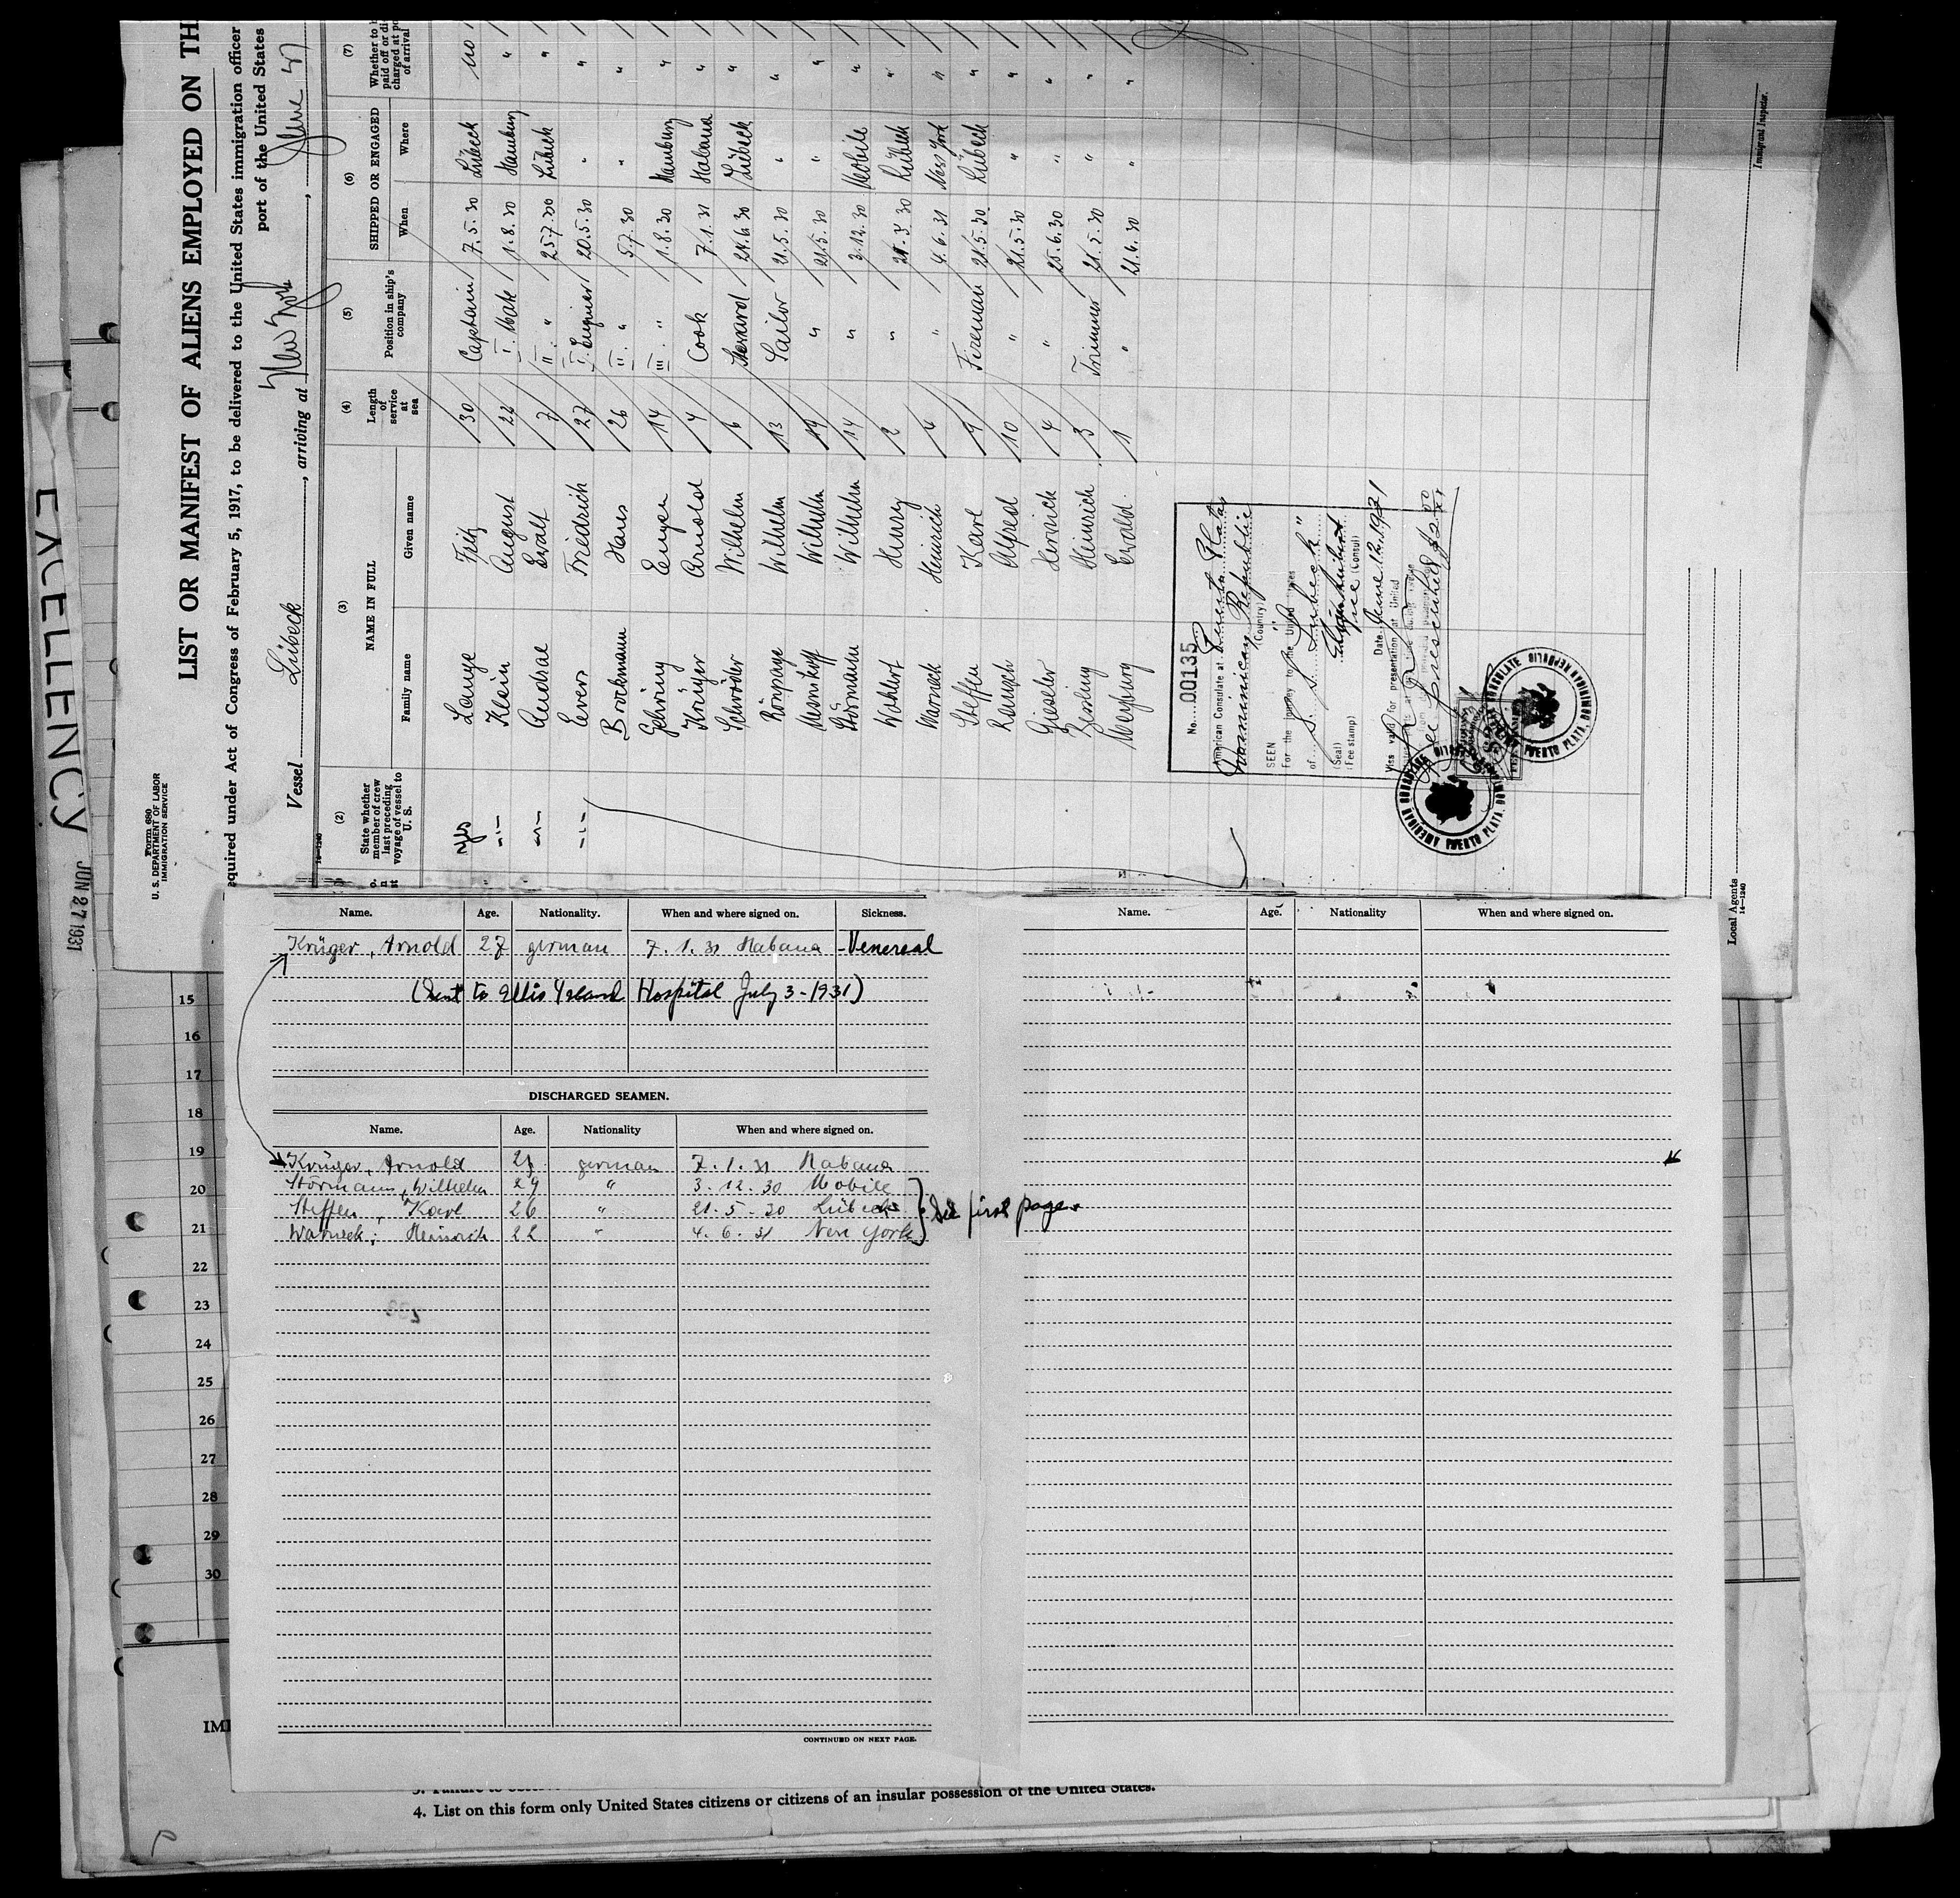 EXCELLENCY JUN 27 1931
Form 680
U. S. DEPARTMENT OF LABOR
IMMIGRATION SERVICE
LIST OR MANIFEST OF ALIENS EMPLOYED ON TH
equired under Act of Congress of February 5, 1917, to be delivered to the United States immigration officer
port of the United States
Vessel Lübeck, arriving at New York, June 27
14—1240
(2) (3) (4) (5) (6) (7)
State whether member of crew last preceding voyage of vessel to U. S.
NAME IN FULL
Family name Given name
Length of service at sea
Position in ship's company
SHIPPED OR ENGAGED
When Where
Whether to paid off or di charged at po of arrival
yes Lange Fritz 30 Captain 7.5.30 Lübeck no
-"- Klein August 22 I. Mate 1.8.30 Hamburg "
-"- Andrae Ewalt 7 II. " 25.7.30 Lübeck "
-"- Evers Friedrich 27 I. Enginer 20.5.30 " "
Brockmann Hans 26 II. " 5.7.30 " "
Gehring Eugen 14 III. " 1.8.30 Hamburg "
Krüger Arnold 4 Cook 7.1.31 Habana "
Schröder Wilhelm 6 Steward 24.6.30 Lübeck "
Rönpage Wilhelm 13 Sailor 21.5.30 " "
Wilhelm " 21.5.30 " "
Störmann Wilhelm 14 " 3.12.30 Mobile "
Wohlert Henry 2 " 21.3.30 Lübeck "
Warneck Heinrich 4 " 4.6.31 New York "
Steffen Karl 9 Fireman 21.5.30 Lübeck "
Rausch Alfred 10 " 21.5.30 " "
Gieseler Henrick 4 " 25.6.30 " "
Heinrich 3 Trimmer 21.5.30 " "
Ewald 1 " 21.6.30 " "
No. 00135
American Consulate at Puerto Plata
Dominican Republic
(Country)
SEEN
For the journey to the United States
of S. S. "Lubeck"
(Seal)
(Fee stamp)
Vice (Consul)
Date June 12, 1931
Visa valid for presentation at United
prescribed $2.00
AMERICAN CONSULATE
PUERTO PLATA, DOMINICAN REPUBLIC
Immigrant Inspector.
Local Agents
14—1240
Name. Age. Nationality. When and where signed on. Sickness.
Krüger, Arnold 27 german 7. 1. 31 Habana - Venereal
(Sent to Ellis Island Hospital July 3 - 1931)
DISCHARGED SEAMEN.
Name. Age. Nationality When and where signed on.
Krüger, Arnold 27 german 7. 1. 31 Habana
Störmann, Wilhelm 29 " 3. 12. 30 Mobile
Steffen, Karl 26 " 21. 5. 30 Lübeck
Warneck, Heinrich 22 " 4. 6. 31 New York
See first page.
CONTINUED ON NEXT PAGE.
Name. Age. Nationality When and where signed on.
15
16
17
18
19
20
21
22
23
24
25
26
27
28
29
30
IM
4. List on this form only United States citizens or citizens of an insular possession of the United States.